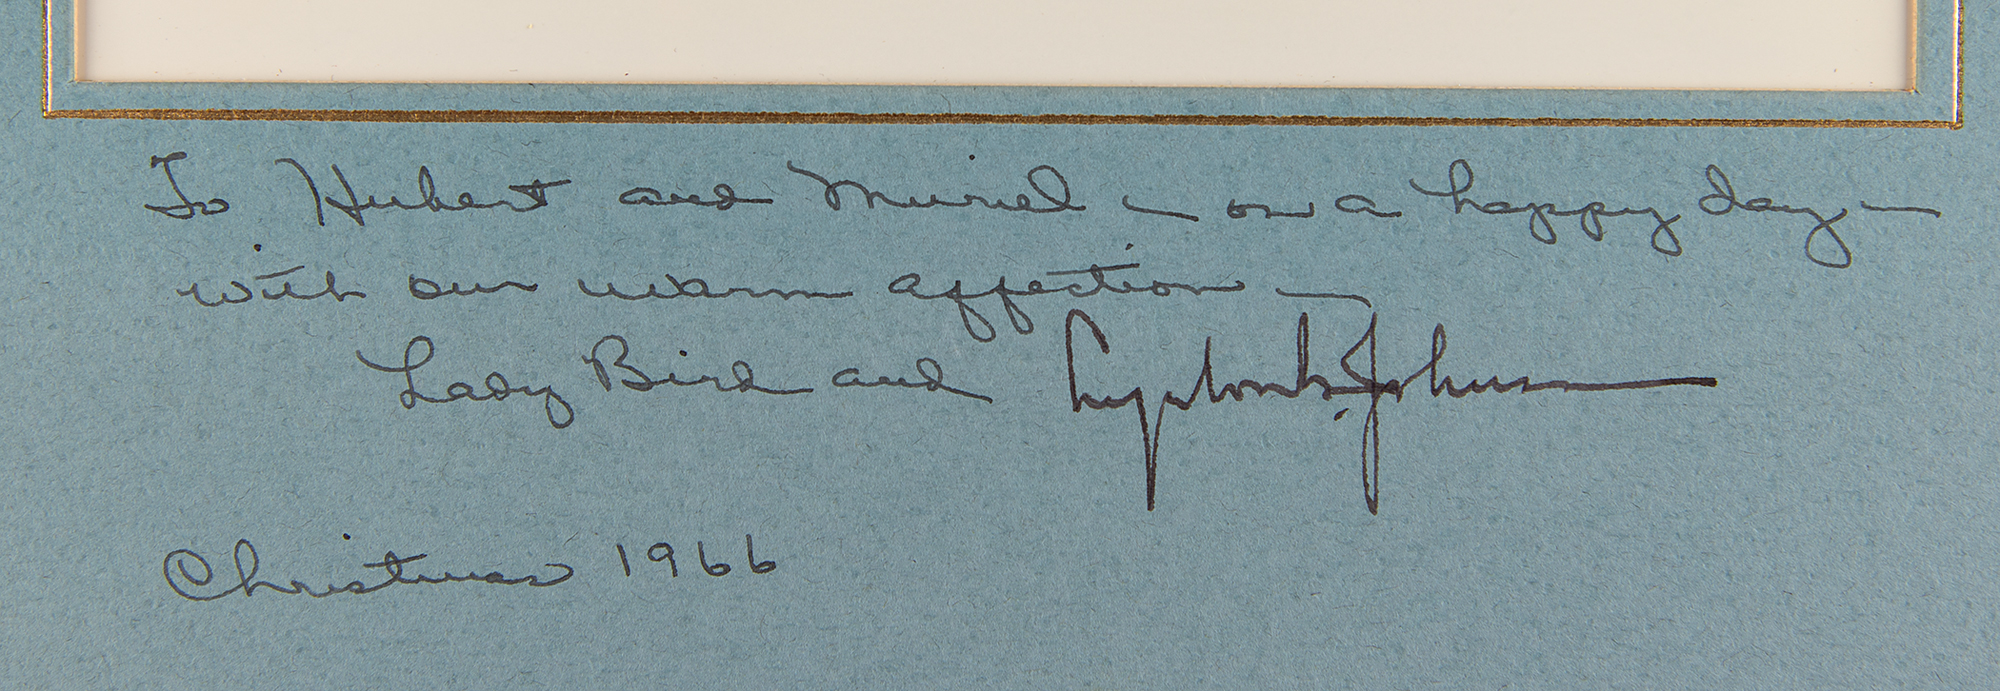 To Hubert and Muriel — on a happy day —
with our warm affection —
Lady Bird and Lyndon B. Johnson
Christmas 1966